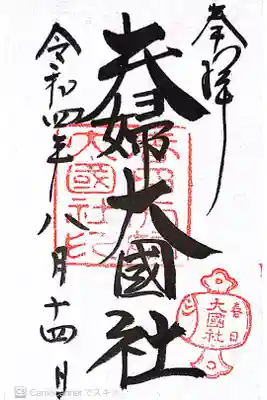 奉拝
夫婦大國社
令和四年八月十四日
大國社印
春日
大國社
CamScanner でスキ